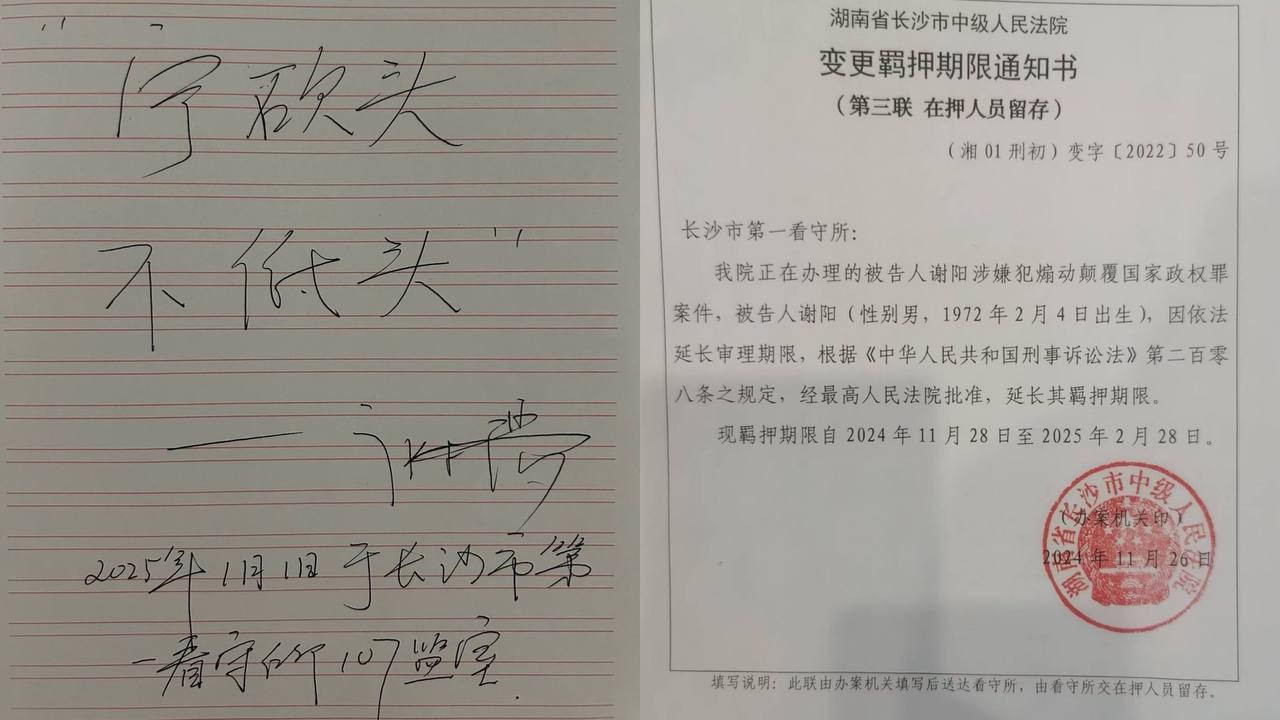 “宁砍头
不低头”
——谢阳
2025年1月1日于长沙市第
一看守所107监室.
湖南省长沙市中级人民法院
变更羁押期限通知书
（第三联 在押人员留存）
（湘 01 刑初）变字〔2022〕50 号
长沙市第一看守所：
我院正在办理的被告人谢阳涉嫌犯煽动颠覆国家政权罪
案件，被告人谢阳（性别男，1972 年 2 月 4 日出生），因依法
延长审理期限，根据《中华人民共和国刑事诉讼法》第二百零
八条之规定，经最高人民法院批准，延长其羁押期限。
现羁押期限自 2024 年 11 月 28 日至 2025 年 2 月 28 日。
湖南省长沙市中级人民法院
（办案机关印）
2024 年 11 月 26 日
填写说明：此联由办案机关填写后送达看守所，由看守所交在押人员留存。